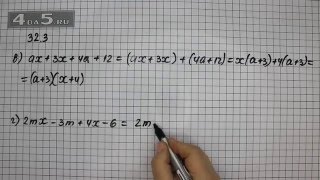 4DA5.RU
32.3
в) ax + 3x + 4a + 12 = (ax + 3x) + (4a + 12) = x(a+3) + 4(a+3) =
= (a+3)(x+4)
г) 2mx - 3m + 4x - 6 = 2m